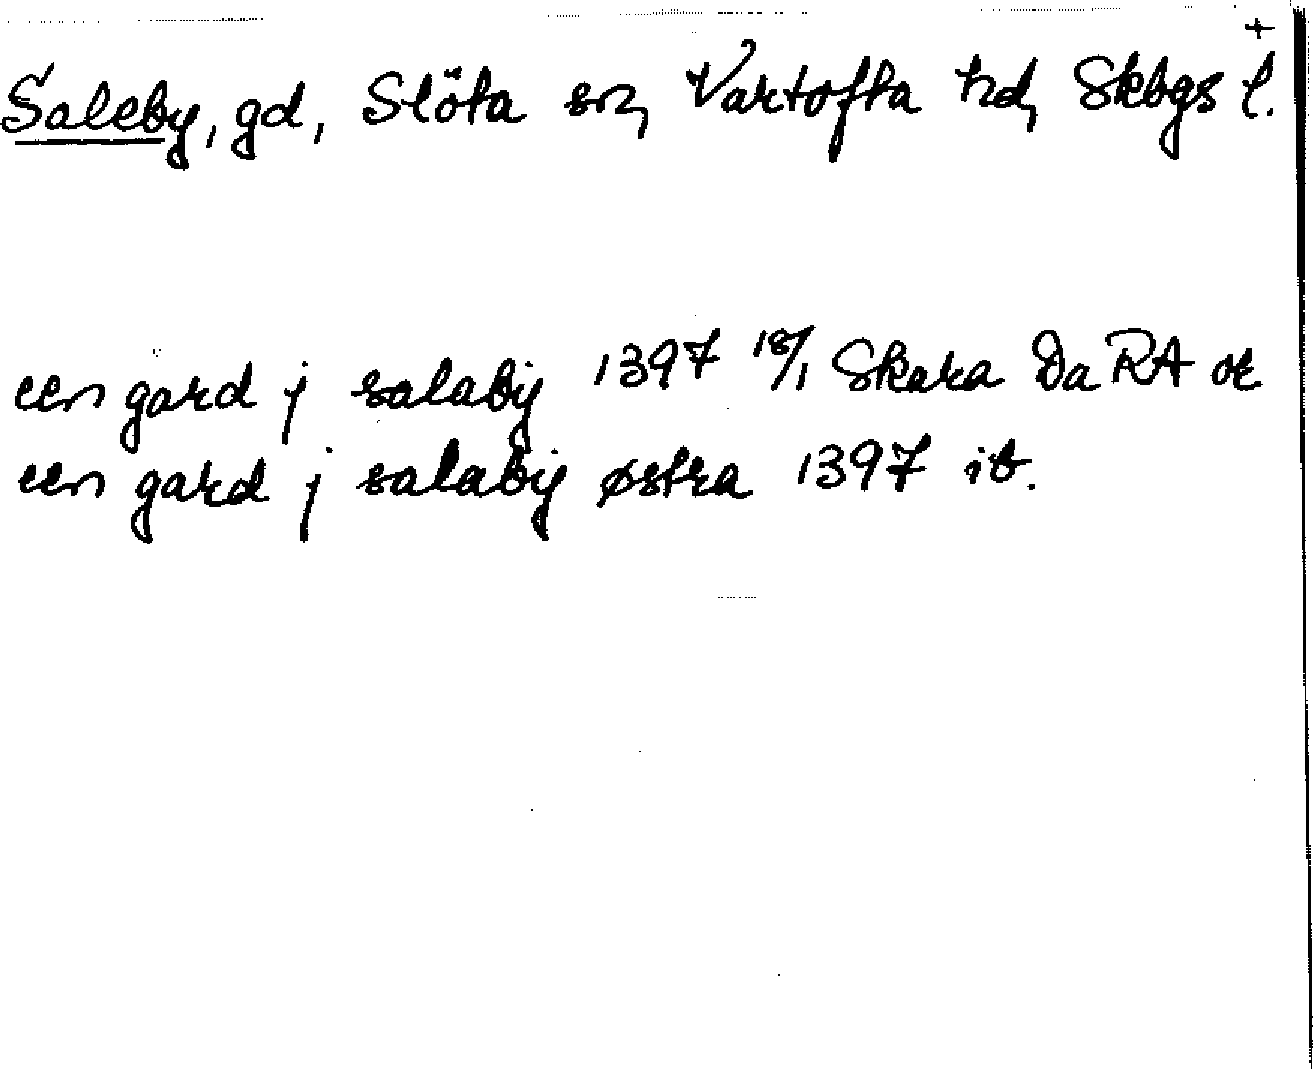 +
Saleby, gd, Slöta sn, Vartofta hd, Skbgs l.
een gard j salaby 1397 18/1 Skara Da RA or
een gard j salaby østra 1397 ib.